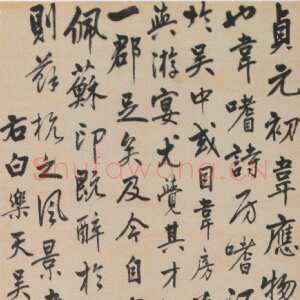 貞元初韋應物
也韋嗜詩房嗜酒
於吳中或目韋房
與游宴尤覺其才
一郡足矣及今自
佩蘇印既醉於
則蘇杭之風景
右白樂天吳
shufawang.cn